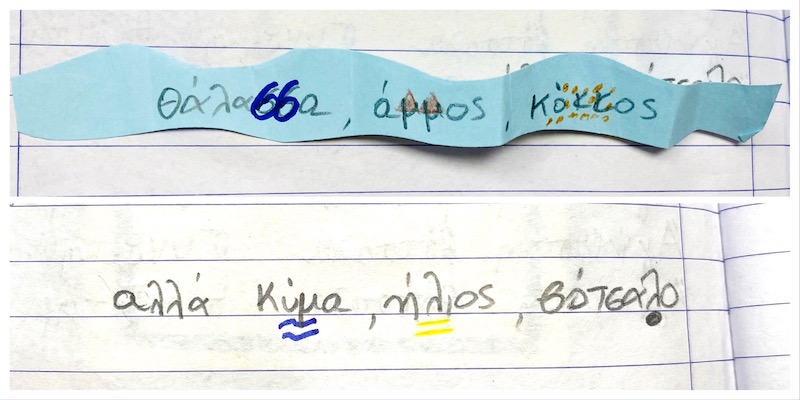 θάλασσα, άμμος, κόκκος
αλλά κύμα, ήλιος, βότσαλο